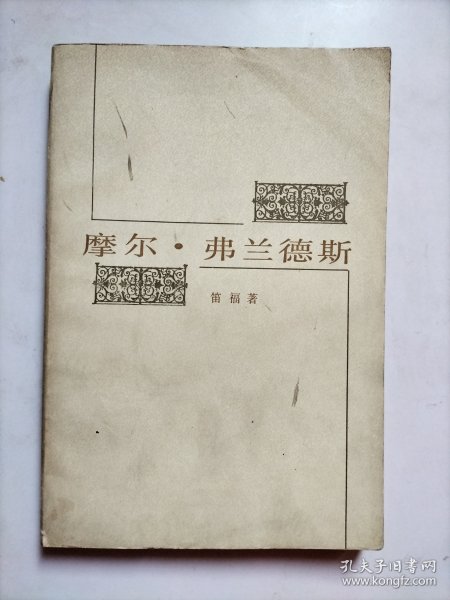 摩尔·弗兰德斯
笛福著
孔夫子旧书网
www.kongfz.com